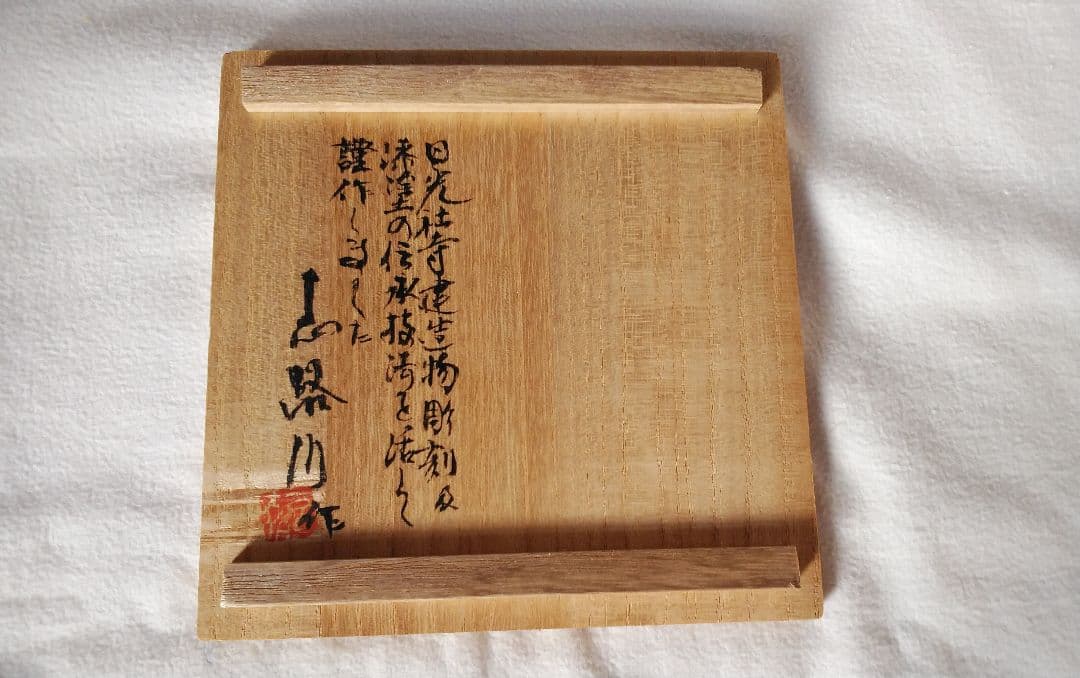 日光社寺建造物彫刻及
漆塗の伝承技術を活かし
謹作しました
志路川 作